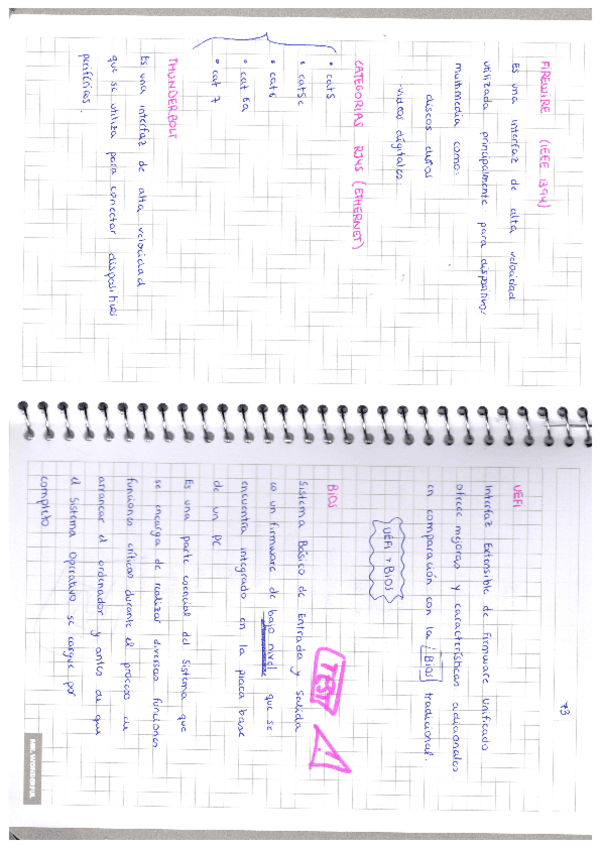 FIREWIRE (IEEE 1394)
Es una interfaz de alta velocidad
utilizada principalmente para dispositivos
multimedia como:
discos duros
videos digitales
CATEGORIAS RJ45 (ETHERNET)
• cat5
• cat5e
• cat6
• cat 6a
• cat 7
THUNDERBOLT
Es una interfaz de alta velocidad
que se utiliza para conectar dispositivos
periféricos.
73
UEFI
Interfaz Extensible de Firmware Unificado
ofrece mejoras y características adicionales
en comparación con la BIOS tradicional.
UEFI > BIOS
BIOS
Sistema Básico de Entrada y Salida
TEST
co un firmware de bajo nivel que se
encuentra integrado en la placa base
de un PC
Es una parte esencial del sistema que
se encarga de realizar diversas funciones
funciones críticas durante el proceso de
arrancar el ordenador y antes de que
el Sistema Operativo se cargue por
completo
MR. WONDERFUL